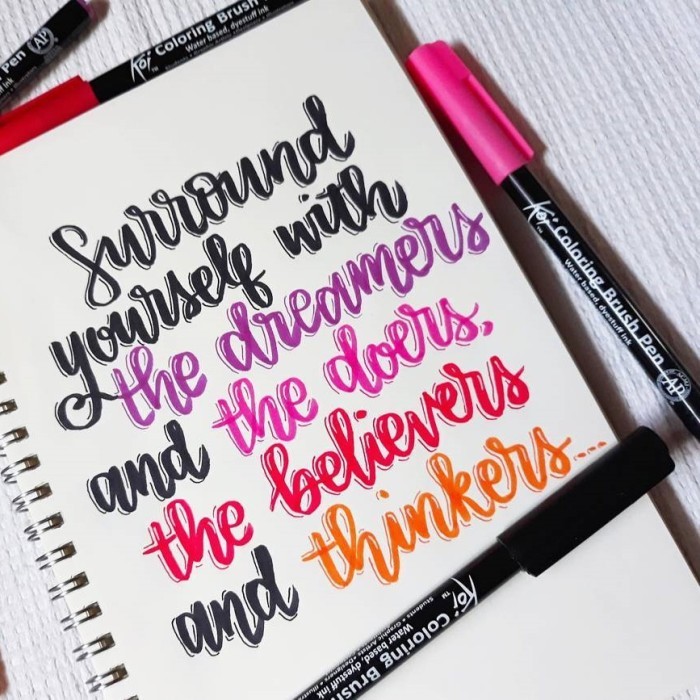 Surround
yourself with
the dreamers
and the doers,
the believers
and thinkers...
Pen
AP
Koi Coloring Brush
TM
Water based, dyestuff ink
Koi Coloring Brush Pen
TM
Water based, dyestuff ink
AP
Koi Coloring Brush
TM
Water based, dyestuff ink
Students • Graphic Artists • Designers • Illustr